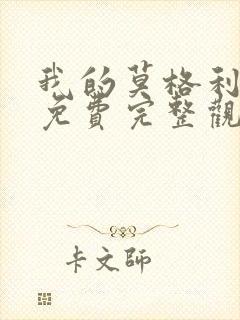 我的莫格利
免費完整觀
卡文師